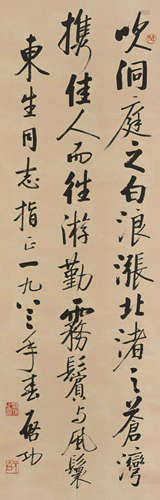 吹洞庭之白浪漲北渚之蒼灣
攜佳人而往游勤霧鬢与風鬟
東生同志指正一九八三年春 啓功